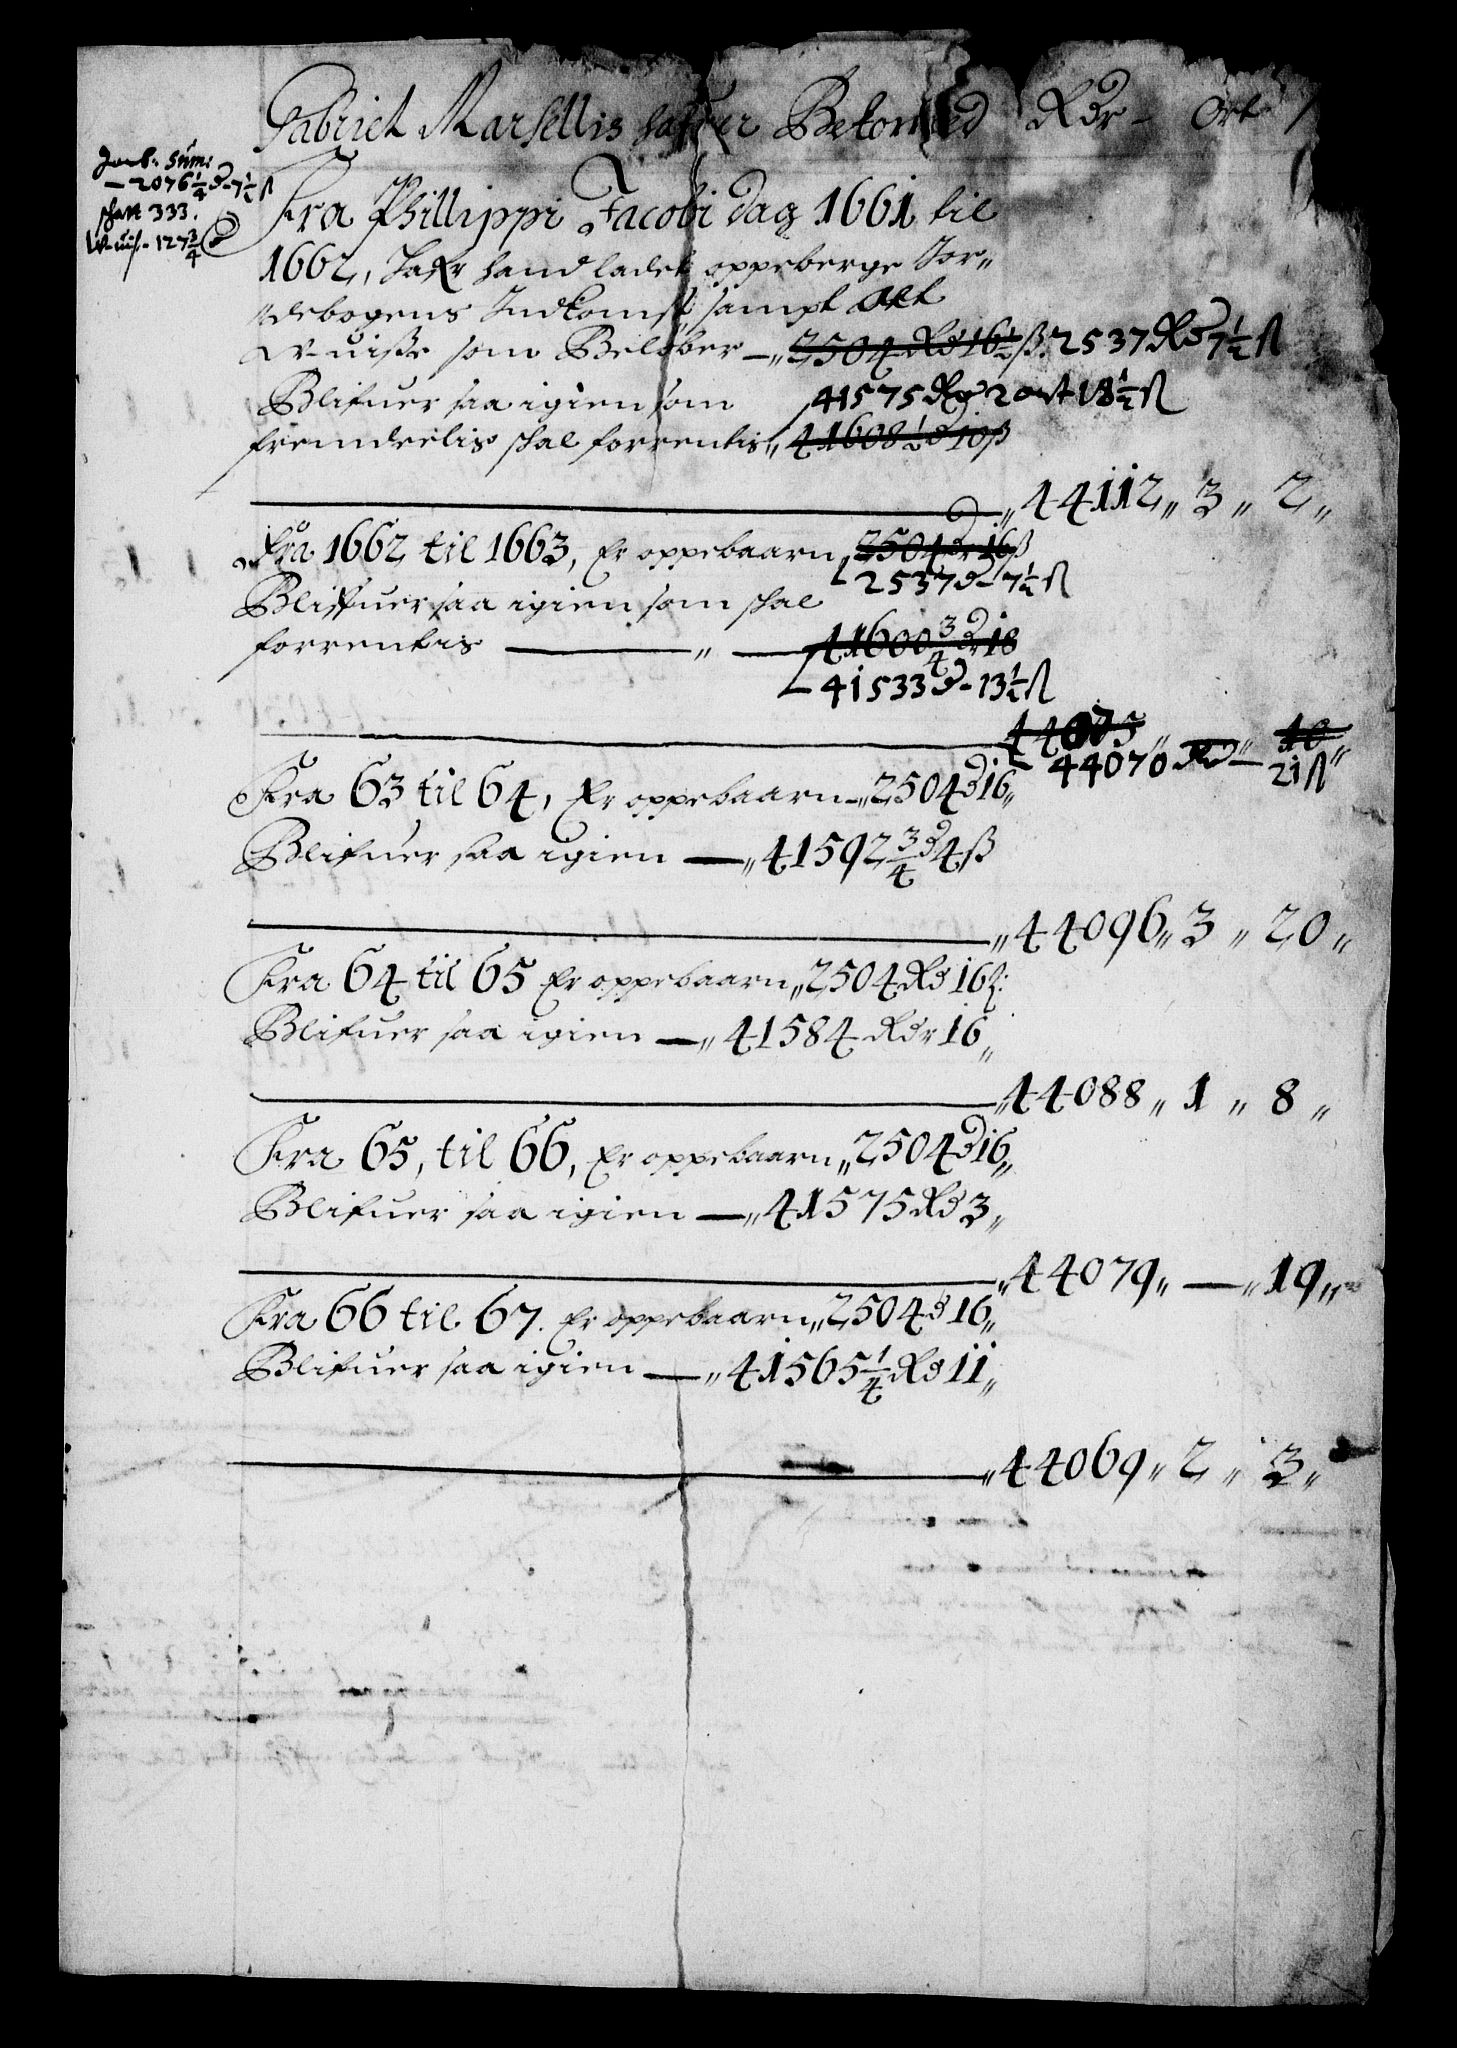 Gabriel Marsellis hafuer Bekommed Rdr - Ort
Jorb. Sum:
- 2076 1/4 d - 7 1/2 ß
schatt 333.
W-uis. - 127 3/4
Fra Phillippi Jacobi dag 1661 til
1662, Hafr hand ladet oppeberge Jor„
„debogens Indkomst, sampt Alt
W-uiße som Beløber — „2504 Rd 16 1/2 ß: 2537 Rd 7 1/2 ß
Blifuer saa igien som 41575 Rd 2 ort 18 1/2 ß
fremdeelis skal forrentis „ 41608 1/2 d 10 ß
„44112„ 3 „ 2„
Fra 1662 til 1663, Er oppebaarn „2504 dr 16 ß
2537 d - 7 1/2 ß
Bliffuer saa igien som skal
forrentis — „ — 41600 3/4 dr 18
41533 d - 13 1/2 ß
44075 „ — „ 10 „
44070 Rd — 21 ß
Fra 63 til 64, Er oppebaarn — „2504 d 16„
Blifuer saa igien — „41592 3/4 d 4 ß
„44096„ 3 „ 20 „
Fra 64 til 65 Er oppebaarn „2504 Rd 16 ß:
Blifuer saa igien — „41584 Rdr 16„
„44088 „ 1 „ 8 „
Fra 65, til 66, Er oppebaarn „2504 d 16„
Blifuer saa igien — „41575 Rd 3„
„44079„ — „ 19„
Fra 66 til 67. Er oppebaarn „2504 d 16„
Blifuer saa igien — „41565 1/4 Rd 11„
„44069 „ 2 „ 3„